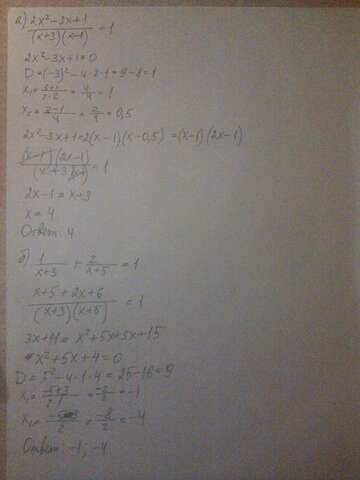 а) 2x² - 3x + 1 / (x+3)(x-1) = 1
2x² - 3x + 1 = 0
D = (-3)² - 4·2·1 = 9 - 8 = 1
x₁ = 3+1 / 2·2 = 4/4 = 1
x₂ = 3-1 / 4 = 2/4 = 0,5
2x² - 3x + 1 = 2(x-1)(x-0,5) = (x-1)(2x-1)
(x-1)(2x-1) / (x+3)(x-1) = 1
2x - 1 = x + 3
x = 4
Ответ: 4
б) 1 / x+3 + 2 / x+5 = 1
x+5+2x+6 / (x+3)(x+5) = 1
3x + 11 = x² + 5x + 3x + 15
x² + 5x + 4 = 0
D = 5² - 4·1·4 = 25 - 16 = 9
x₁ = -5+3 / 2·1 = -2/2 = -1
x₂ = -5-3 / 2 = -8/2 = -4
Ответ: -1; -4